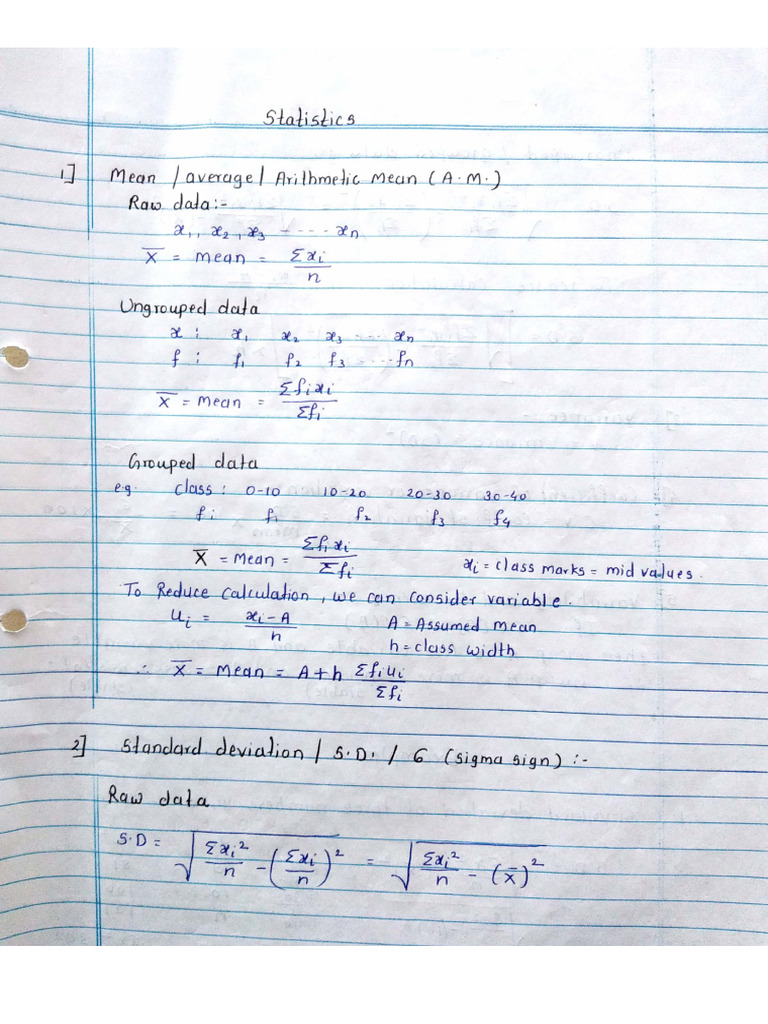 Statistics
1] Mean / average / Arithmetic Mean (A.M.)
Raw data:-
x₁, x₂, x₃ - ---- xₙ
X̅ = mean = Σxᵢ / n
Ungrouped data
x : x₁ x₂ x₃ --- xₙ
f : f₁ f₂ f₃ ---- fₙ
X̅ = mean = Σfᵢxᵢ / Σfᵢ
Grouped data
e.g. class : 0-10 10-20 20-30 30-40
fᵢ f₁ f₂ f₃ f₄
X̅ = Mean = Σfᵢxᵢ / Σfᵢ xᵢ = class marks = mid values.
To Reduce calculation, we can consider variable.
uᵢ = xᵢ - A / h A = Assumed mean
h = class width
∴ X̅ = Mean = A + h Σfᵢuᵢ / Σfᵢ
2] Standard deviation / S.D. / σ (sigma sign) :-
Raw data
S.D = √(Σxᵢ² / n - (Σxᵢ / n)²) = √(Σxᵢ² / n - (x̅)²)